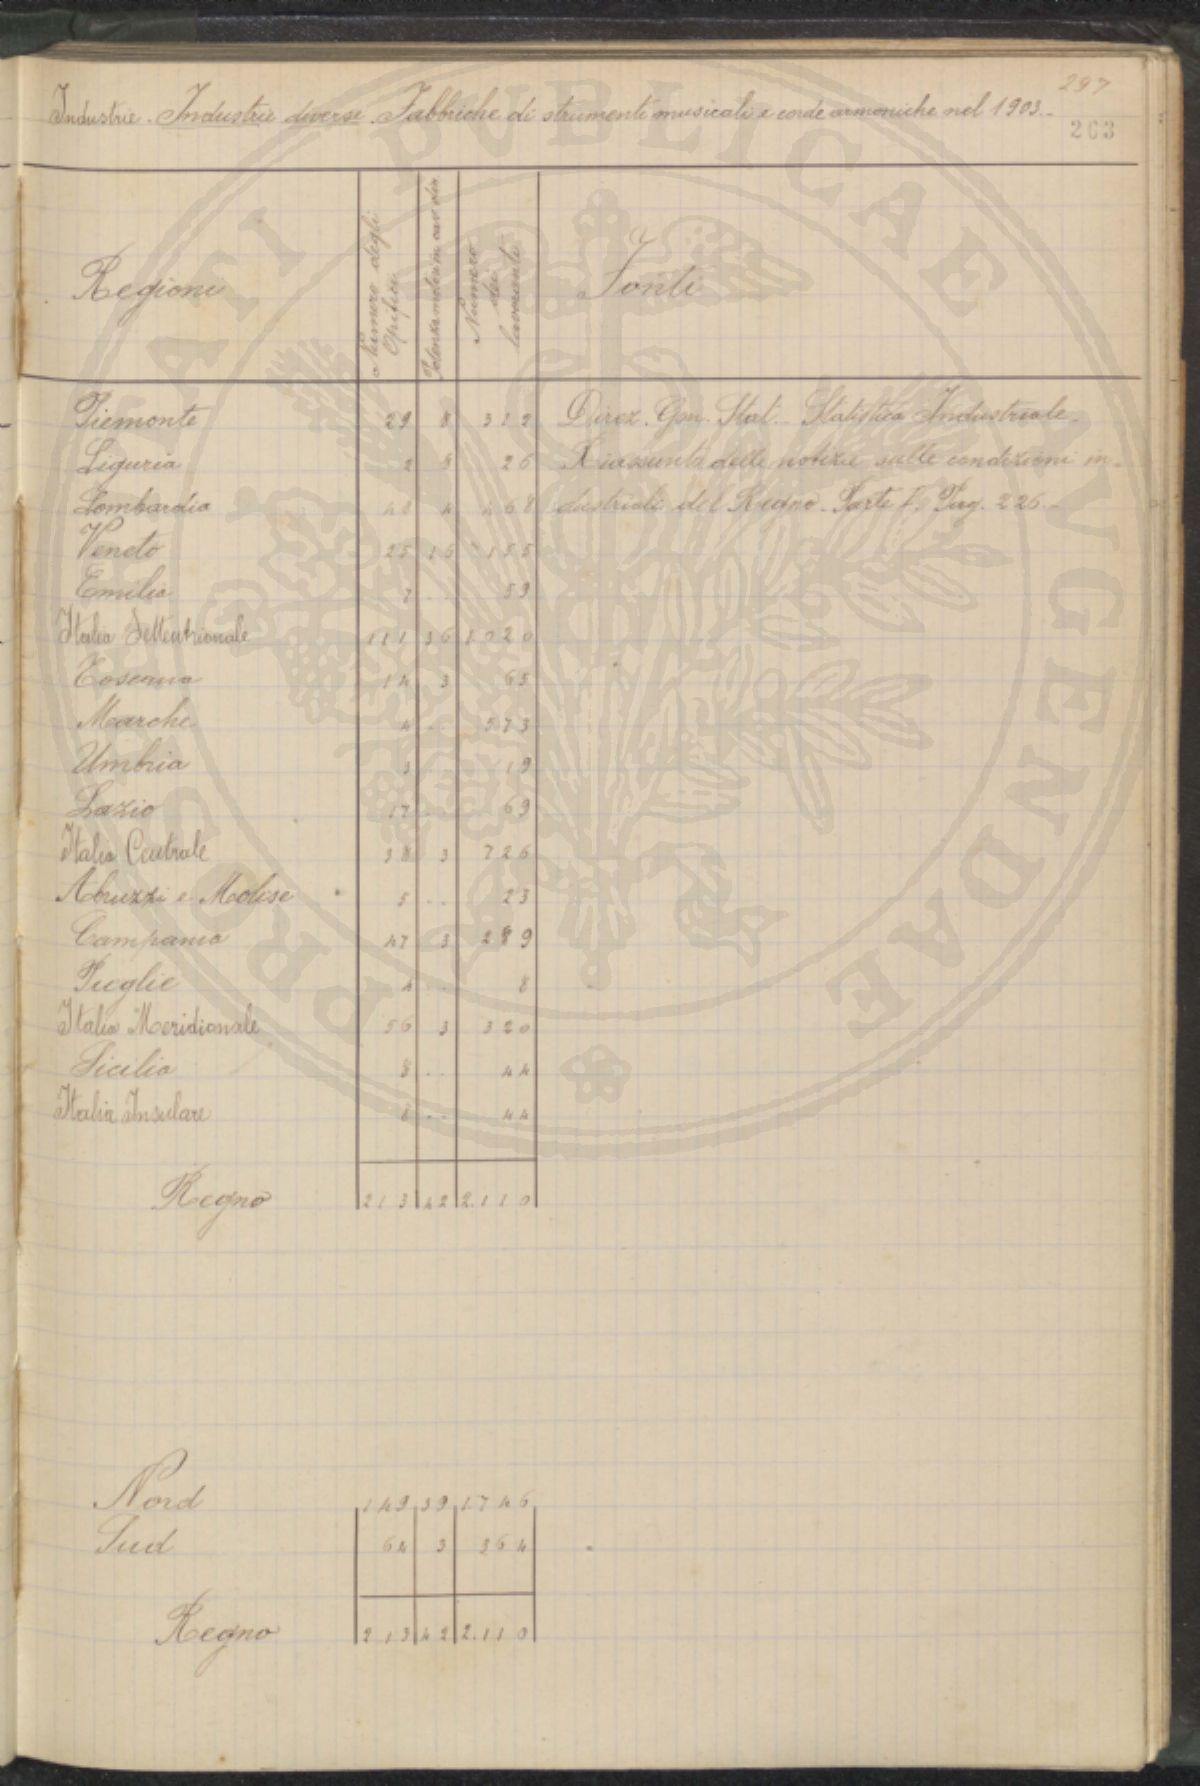 297
Industrie. Industrie diverse. Fabbriche di strumenti musicali e corde armoniche nel 1903.-
263
Regioni | Numero degli Opifici | Potenza motrice in cav. din. | Numero dei lavoranti | Fonti
Piemonte 29 8 312 Direz. Gen. Stat. - Statistica Industriale.
Liguria 2 8 26 Riassunto delle notizie sulle condizioni in-
Lombardia 48 4 468 dustriali del Regno. Parte I. Pag. 226.-
Veneto 25 16 155
Emilia 7 .. 59
Italia Settentrionale 111 36 1.020
Toscana 14 3 65
Marche 4 .. 573
Umbria 3 .. 19
Lazio 17 .. 69
Italia Centrale 38 3 726
Abruzzi e Molise 5 .. 23
Campania 47 3 289
Puglie 4 .. 8
Italia Meridionale 56 3 320
Sicilia 8 .. 44
Italia Insulare 8 .. 44
Regno 213 42 2.110
Nord 149 39 1.746
Sud 64 3 364
Regno 213 42 2.110
PROSPERITATI PUBLICAE AVGENDAE